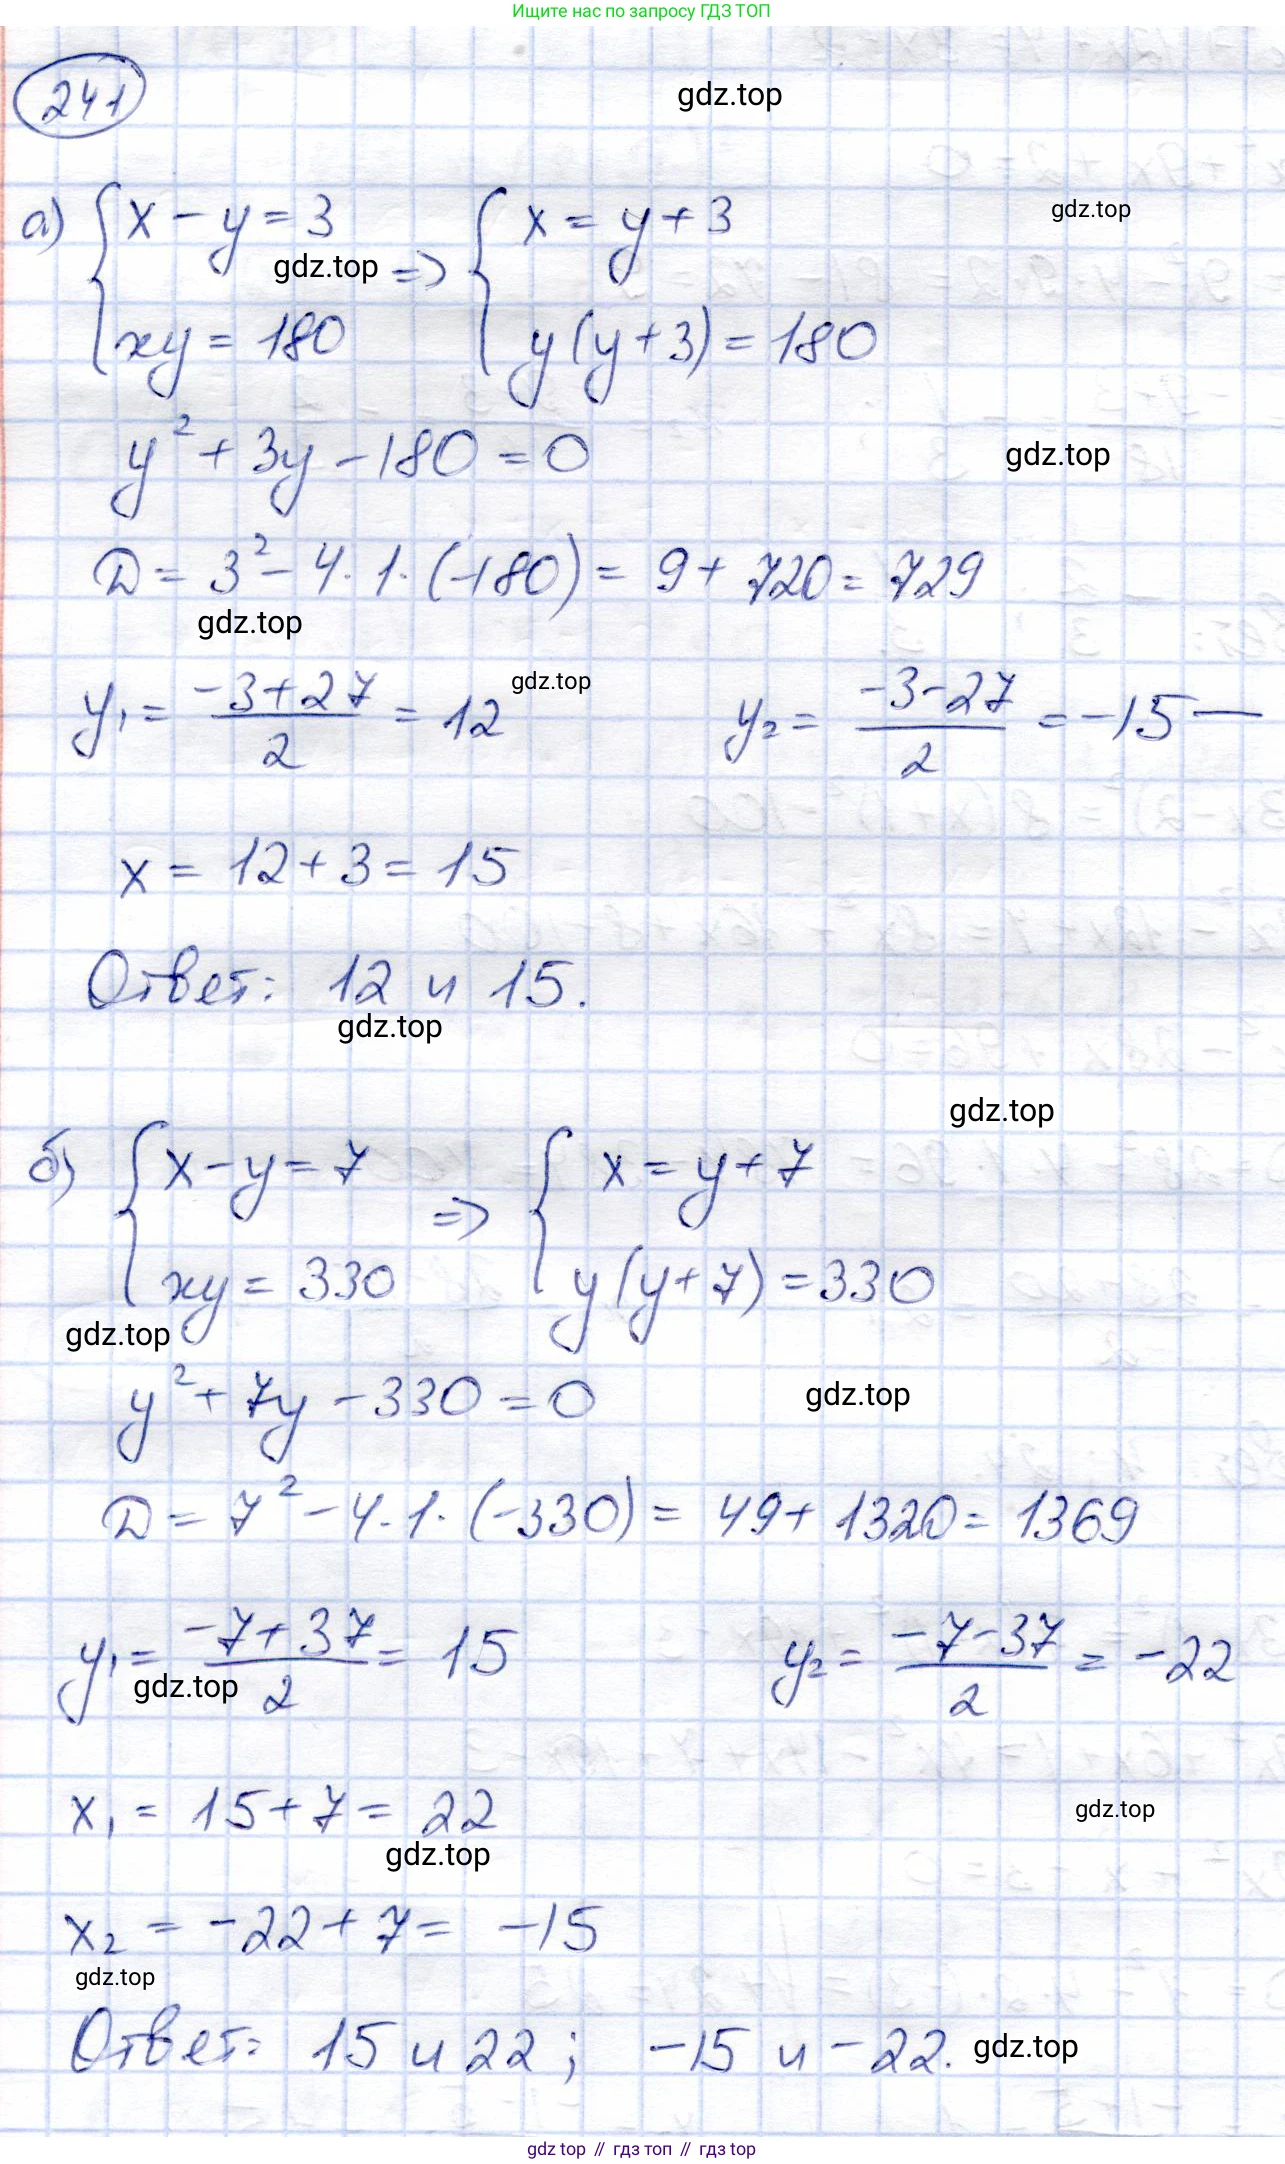 Ищите нас по запросу ГДЗ ТОП
241
gdz.top
а) { x - y = 3 => { x = y + 3
gdz.top
gdz.top
xy = 180 y(y + 3) = 180
y² + 3y - 180 = 0
gdz.top
D = 3² - 4 · 1 · (-180) = 9 + 720 = 729
gdz.top
y₁ = (-3 + 27)/2 = 12 y₂ = (-3 - 27)/2 = -15 —
gdz.top
x = 12 + 3 = 15
Ответ: 12 и 15.
gdz.top
gdz.top
б) { x - y = 7 => { x = y + 7
xy = 330 y(y + 7) = 330
gdz.top
y² + 7y - 330 = 0
gdz.top
D = 7² - 4 · 1 · (-330) = 49 + 1320 = 1369
y₁ = (-7 + 37)/2 = 15 y₂ = (-7 - 37)/2 = -22
gdz.top
x₁ = 15 + 7 = 22
gdz.top
gdz.top
x₂ = -22 + 7 = -15
gdz.top
Ответ: 15 и 22; -15 и -22.
gdz.top
gdz top // гдз топ // гдз top